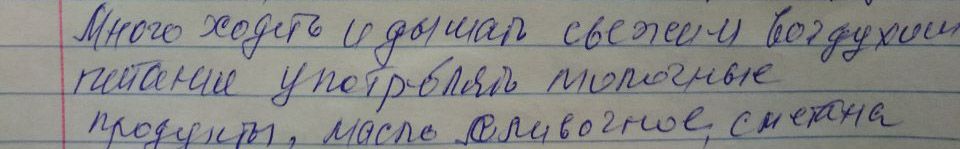 Много ходить и дышать свежим воздухом
питание употреблять молочные
продукты, масло сливочное, сметана